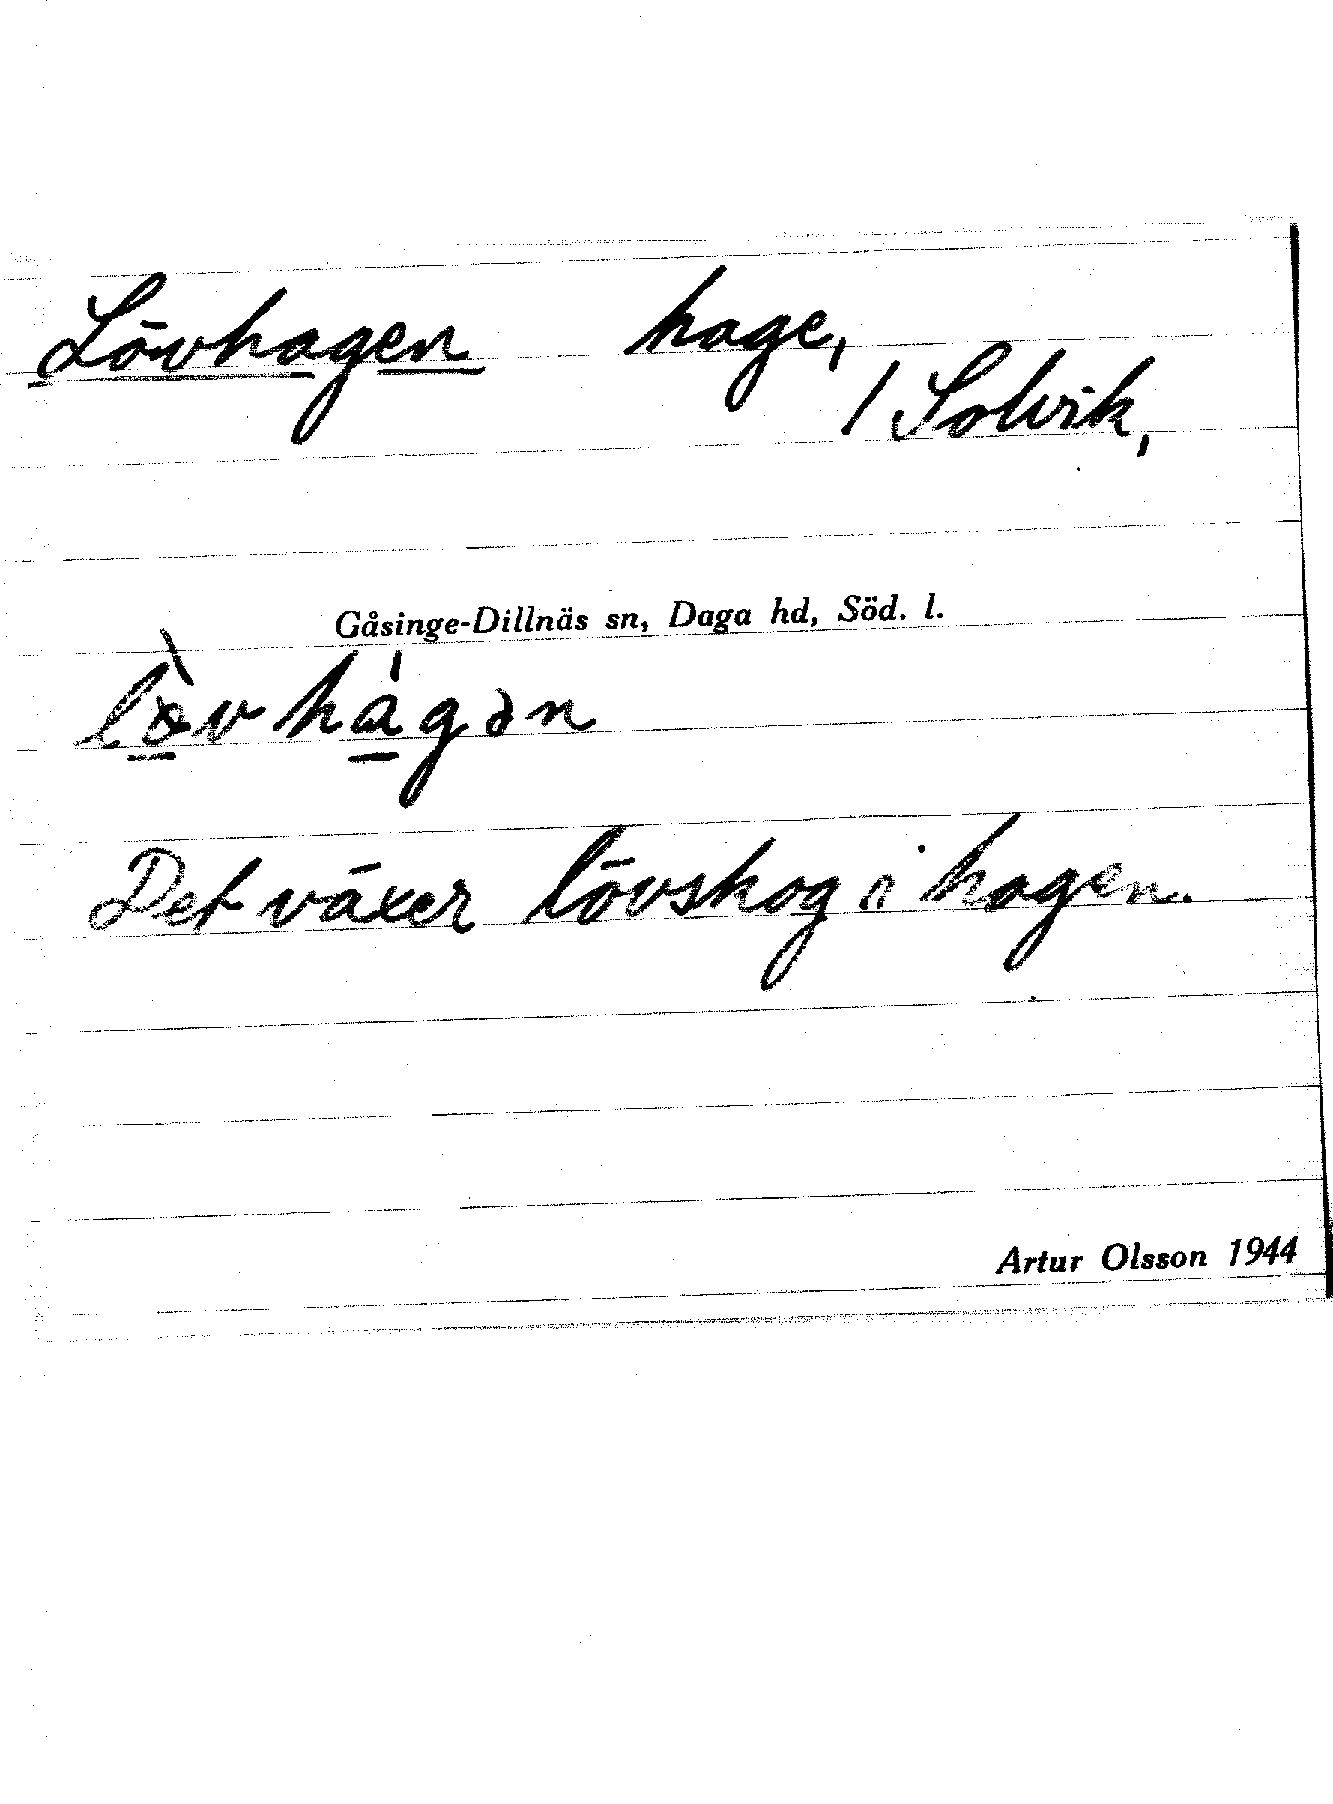 Lövhagen hage,
/ Solvik,
Gåsinge-Dillnäs sn, Daga hd, Söd. l.
lø̀vhágən
Det växer lövskog i hagen.
Artur Olsson 1944